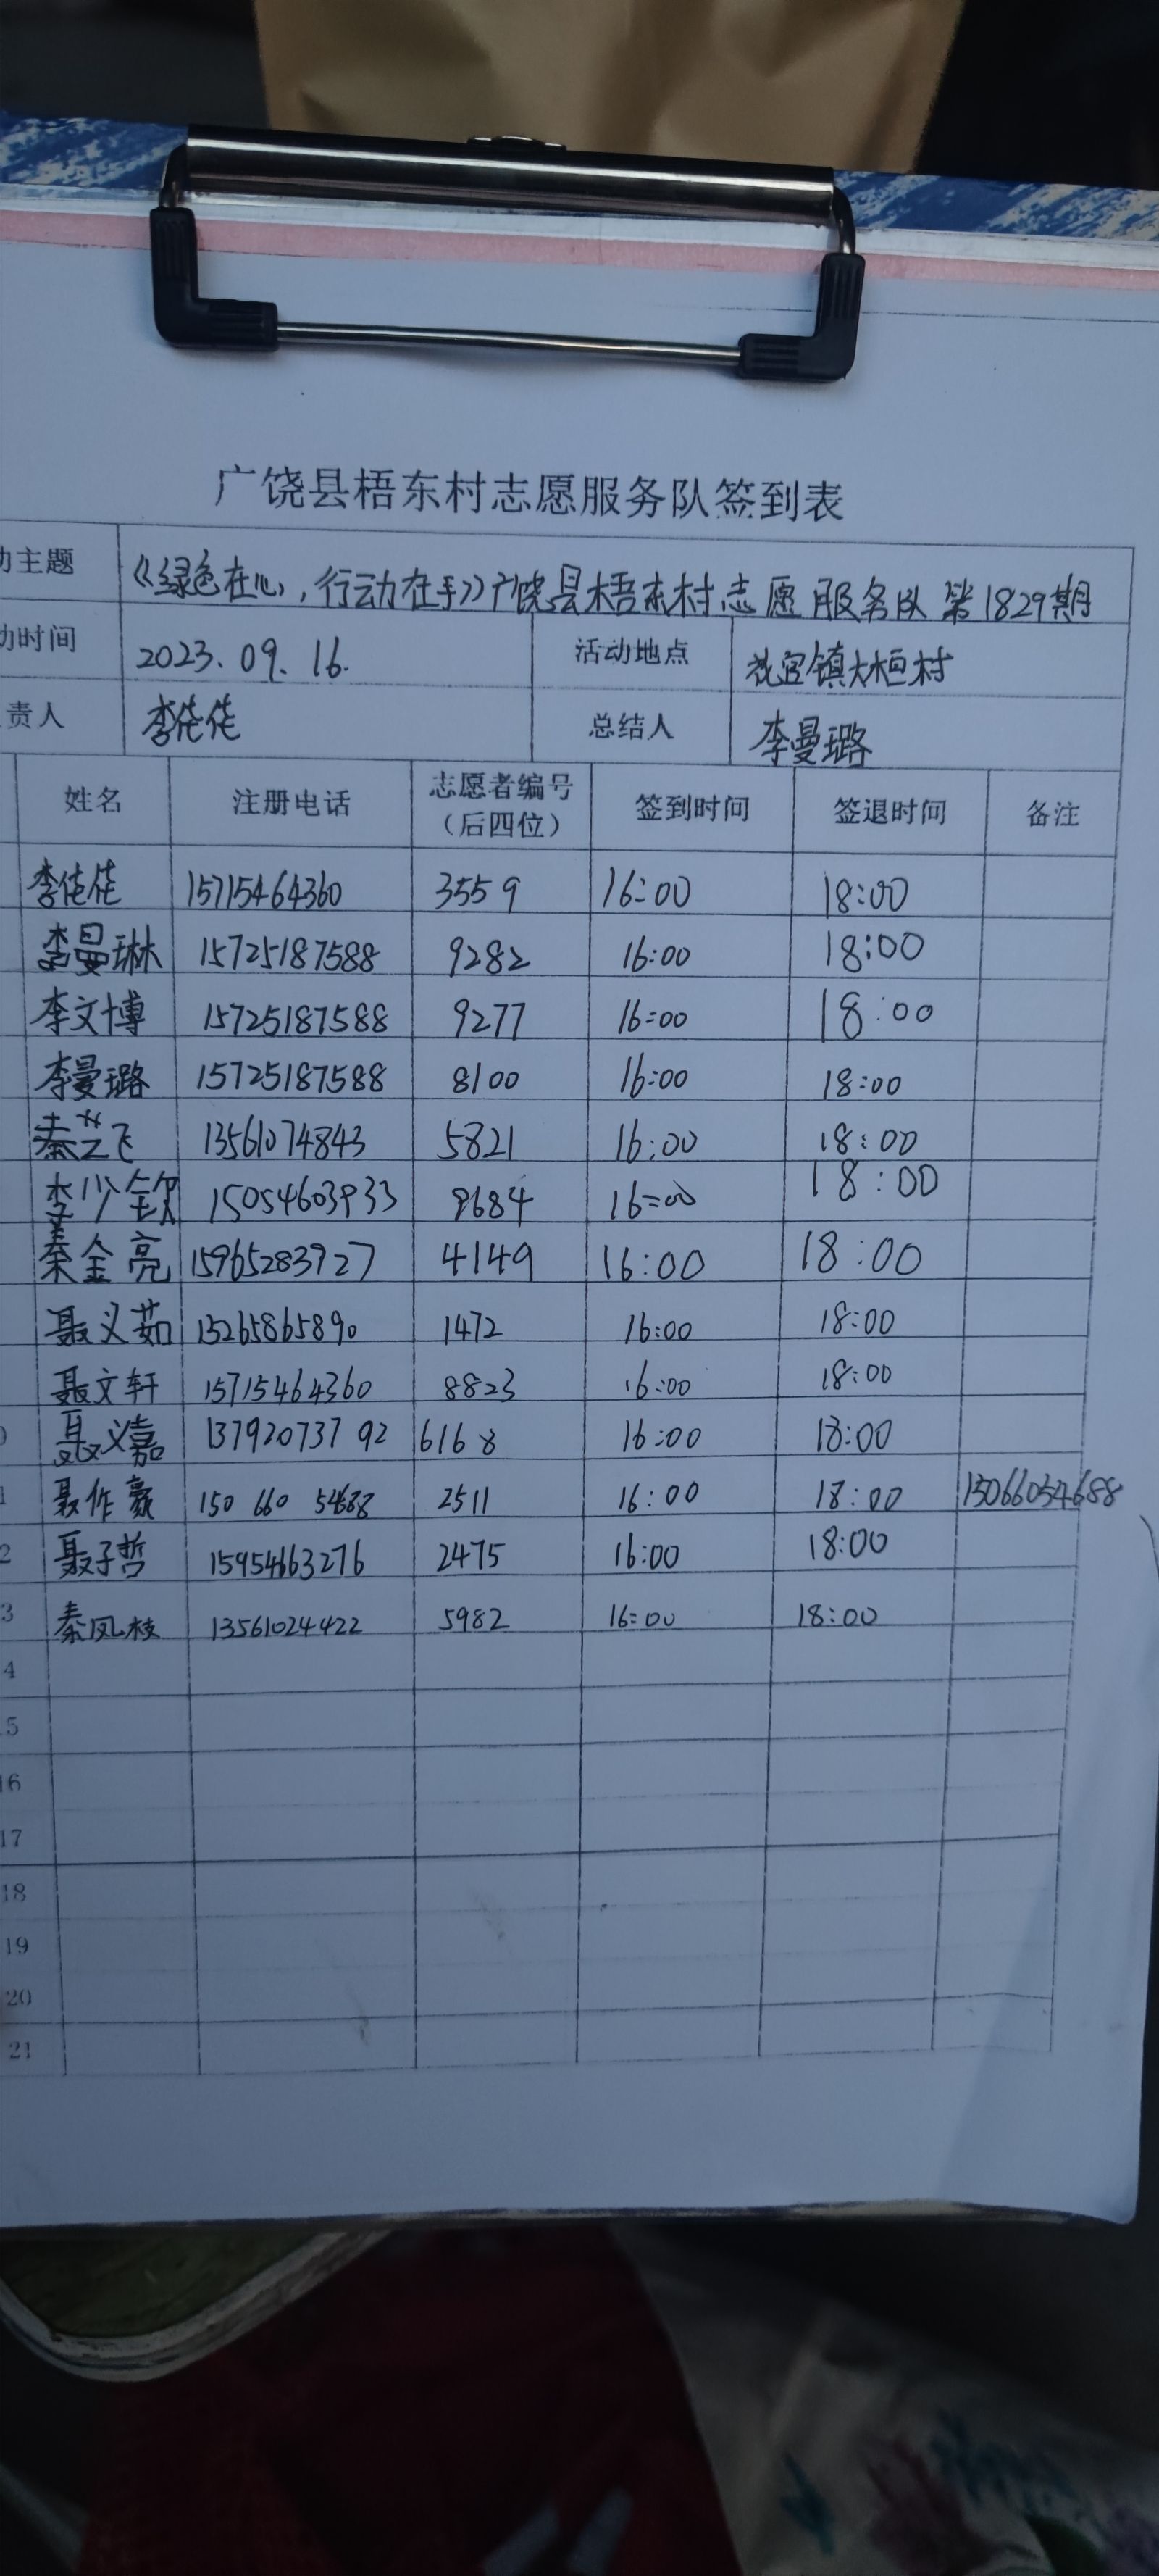 广饶县梧东村志愿服务队签到表
动主题 《绿色在心,行动在手》广饶县梧东村志愿服务队第1829期
动时间 2023.09.16. 活动地点 镇大桓村
责人 李佳佳 总结人 李曼璐
姓名 注册电话 志愿者编号（后四位） 签到时间 签退时间 备注
李佳佳 15715464360 3559 16:00 18:00
李曼琳 15725187588 9282 16:00 18:00
李文博 15725187588 9277 16:00 18:00
李曼璐 15725187588 8100 16:00 18:00
秦芸飞 13561074843 5821 16:00 18:00
李少钦 15054603933 9684 16:00 18:00
秦金亮 15965283927 4149 16:00 18:00
聂义茹 15265865890 1472 16:00 18:00
聂文轩 15715464360 8823 16:00 18:00
聂义嘉 13792073792 6168 16:00 18:00
1 聂作 150 660 54688 2511 16:00 18:00 15066054688
2 聂子哲 15954663276 2475 16:00 18:00
3 秦凤枝 13561024422 5982 16:00 18:00
4
15
16
17
18
19
20
21